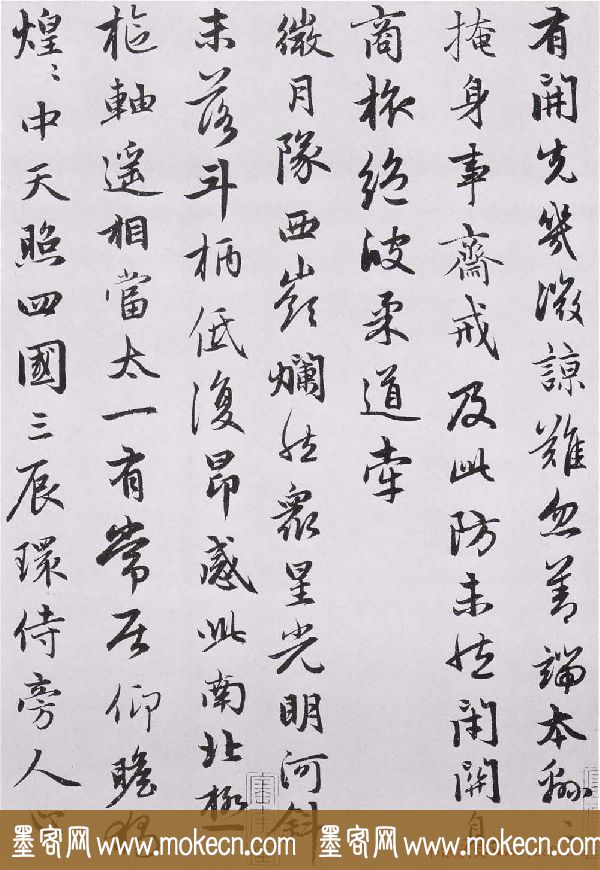 有開先幾微諒難忽善端本綿〻
掩身事齋戒及此防未然閉關息
商旅絕彼柔道牽
微月隊西嶺爛然衆星光明河斜
未落斗柄低復昂感此南北極
樞軸遥相當太一有常居仰瞻獨
煌〻中天照四國三辰環侍旁人心
墨客网 www.mokecn.com 墨客网 www.mokecn.com